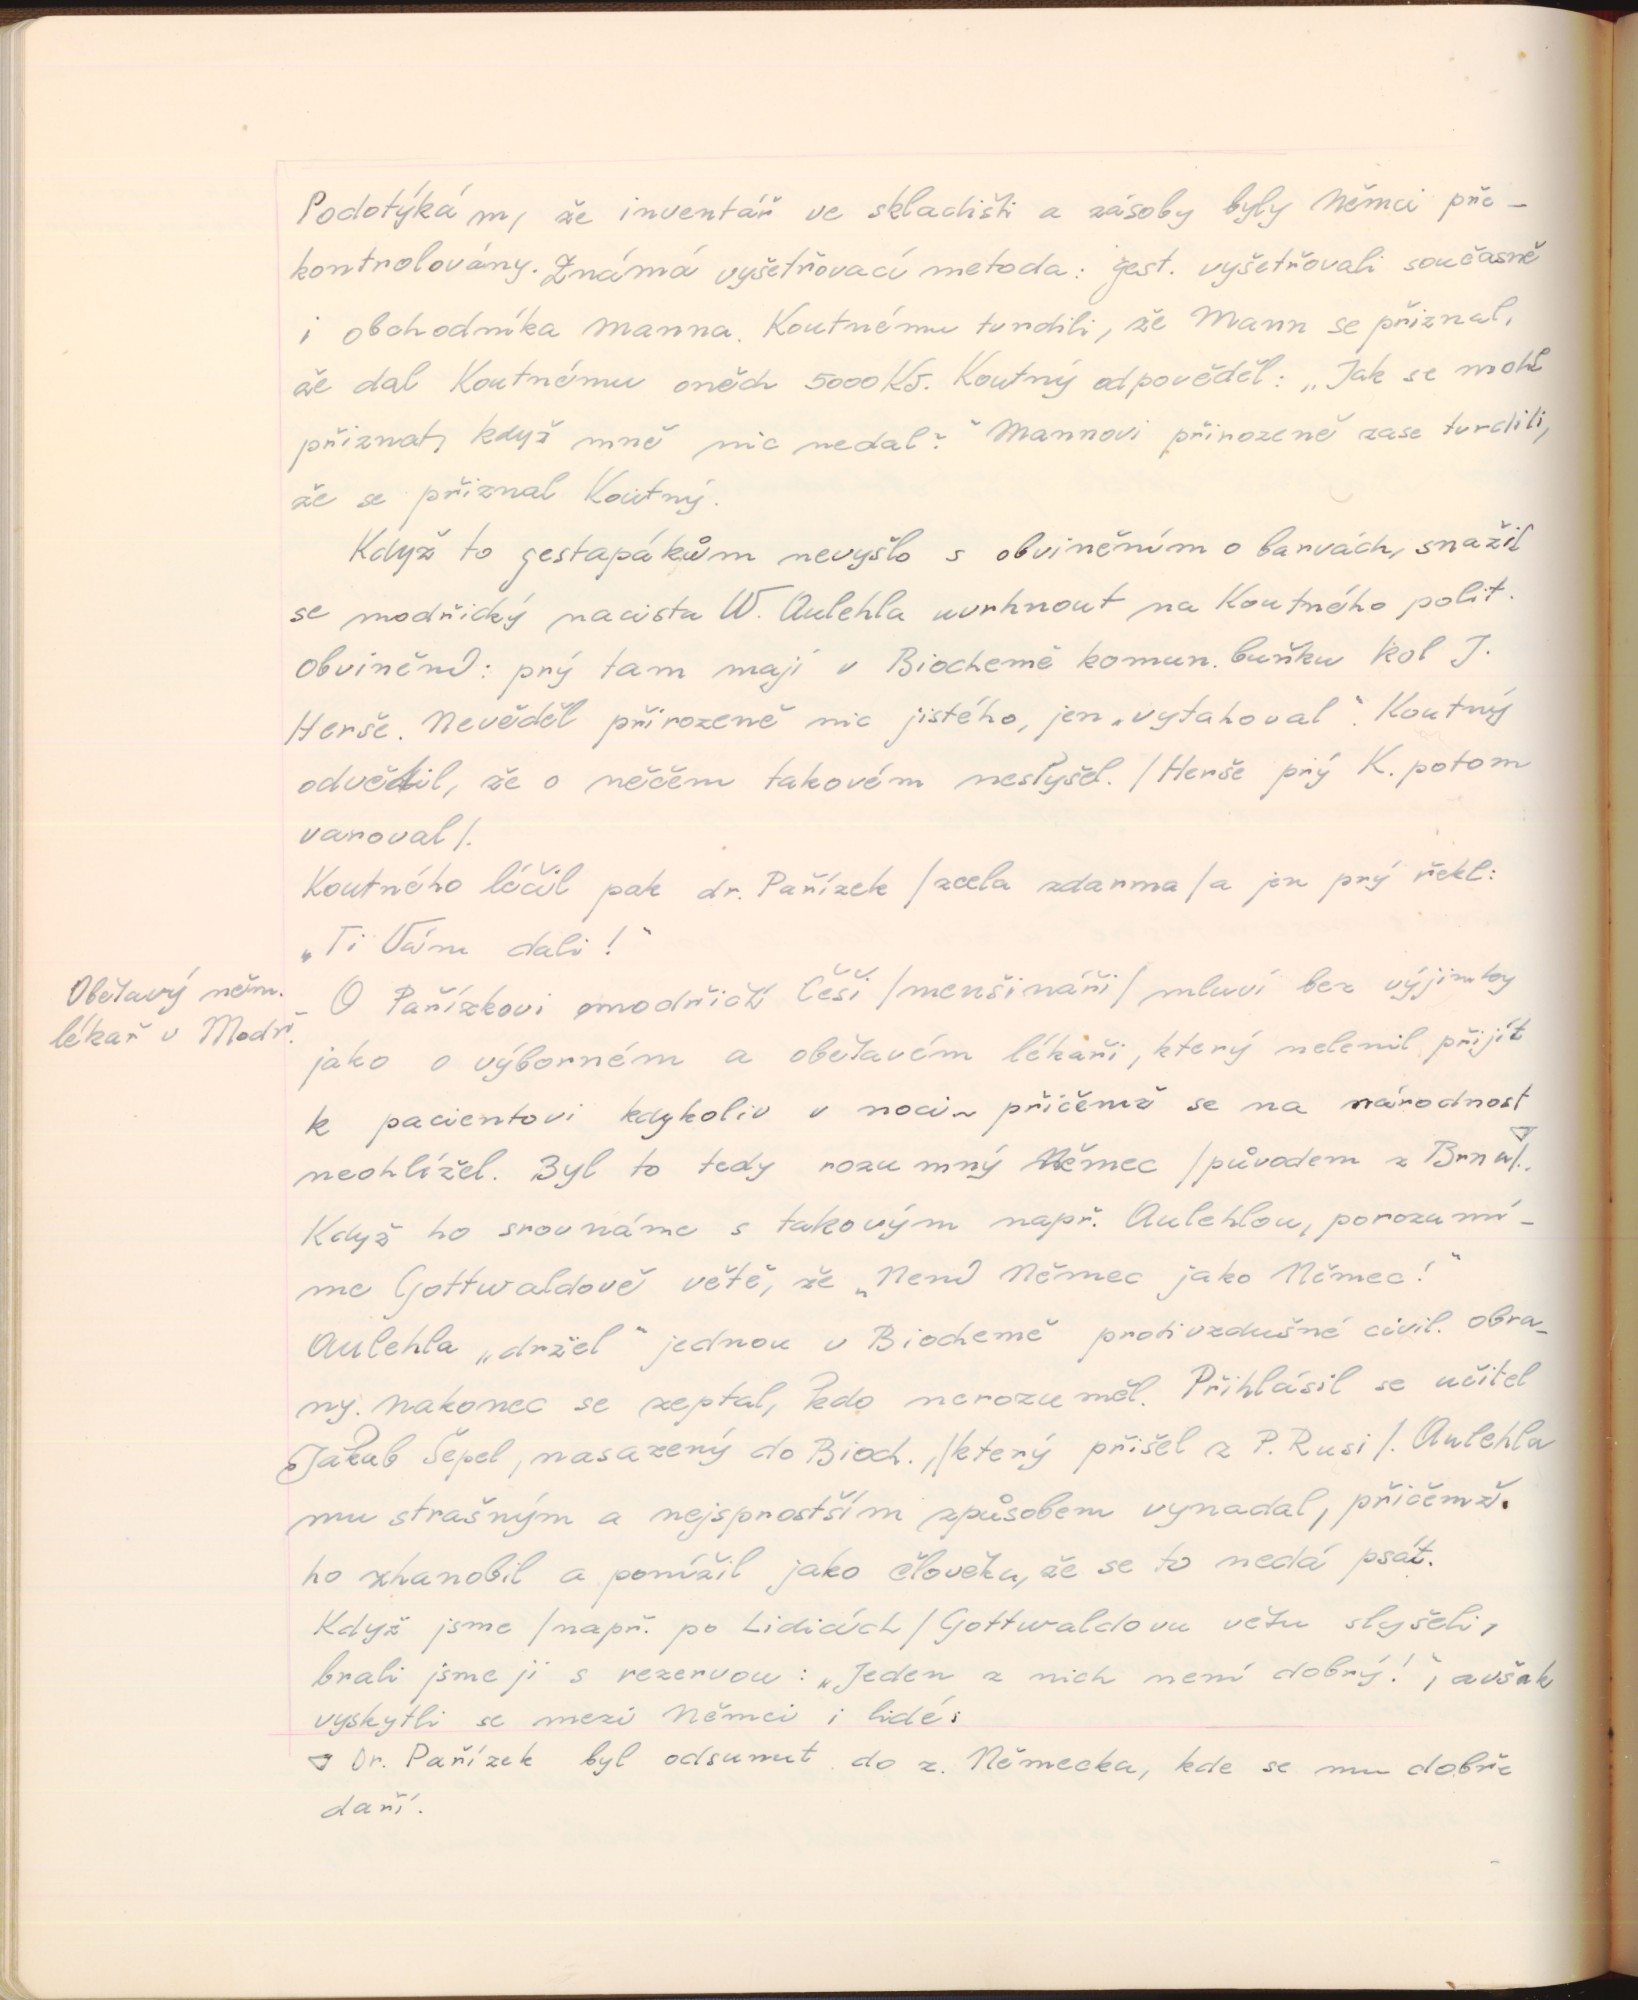 Podotýkám, že inventář ve skladišti a zásoby byly Němci pře-
kontrolovány. Známá vyšetřovací metoda: gest. vyšetřovali současně
i obchodníka Manna. Koutnému tvrdili, že Mann se přiznal,
že dal Koutnému oněch 5000 Kč. Koutný odpověděl: „Jak se mohl
přiznat, když mně nic nedal?“ Mannovi přirozeně zase tvrdili,
že se přiznal Koutný.
Když to gestapákům nevyšlo s obviněním o barvách, snažil
se modřický nacista W. Aulehla uvrhnout na Koutného polit.
obvinění: prý tam mají v Biochemě komun. buňku kol J.
Herše. Nevěděl přirozeně nic jistého, jen „vytahoval“. Koutný
odvětil, že o něčem takovém neslyšel. /Herše prý K. potom
varoval/.
Koutného léčil pak dr. Pařízek /zcela zdarma/ a jen prý řekl:
„Ti Vám dali!“
Obětavý něm.
lékař v Modř.
O Pařízkovi modřičtí Češi /menšináři/ mluví bez výjimky
jako o výborném a obětavém lékaři, který nelenil přijít
k pacientovi kdykoliv v noci, přičemž se na národnost
neohlížel. Byl to tedy rozumný Němec /původem z Brna/.
Když ho srovnáme s takovým např. Aulehlou, porozumí-
me Gottwaldově větě, že „Není Němec jako Němec!“
Aulehla „držel“ jednou v Biochemě protivzdušné civil. obra-
ny. Nakonec se zeptal, kdo nerozuměl. Přihlásil se učitel
Jakub Šepel, nasazený do Bioch., /který přišel z P. Rusi/. Aulehla
mu strašným a nejsprostším způsobem vynadal, přičemž
ho zhanobil a ponížil jako člověka, že se to nedá psát.
Když jsme /např. po Lidicích/ Gottwaldovu větu slyšeli,
brali jsme ji s rezervou: „Jeden z nich není dobrý!“, avšak
vyskytli se mezi Němci i lidé.
▽ Dr. Pařízek byl odsunut do z. Německa, kde se mu dobře
daří.